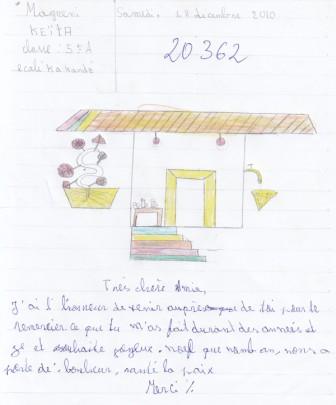 Magueni Samedi, 18 decembre 2010
KEÏTA
classe : 5è A 20 362
ecoli Kakandé
Très chère Amie,
J'ai l'honneur de venir auprès de toi pour te
remercier ce que tu m'as fait durant des années et
je et souhaite joyeux. noyl que nous a
porte de bonheur, santé la paix
Merci %